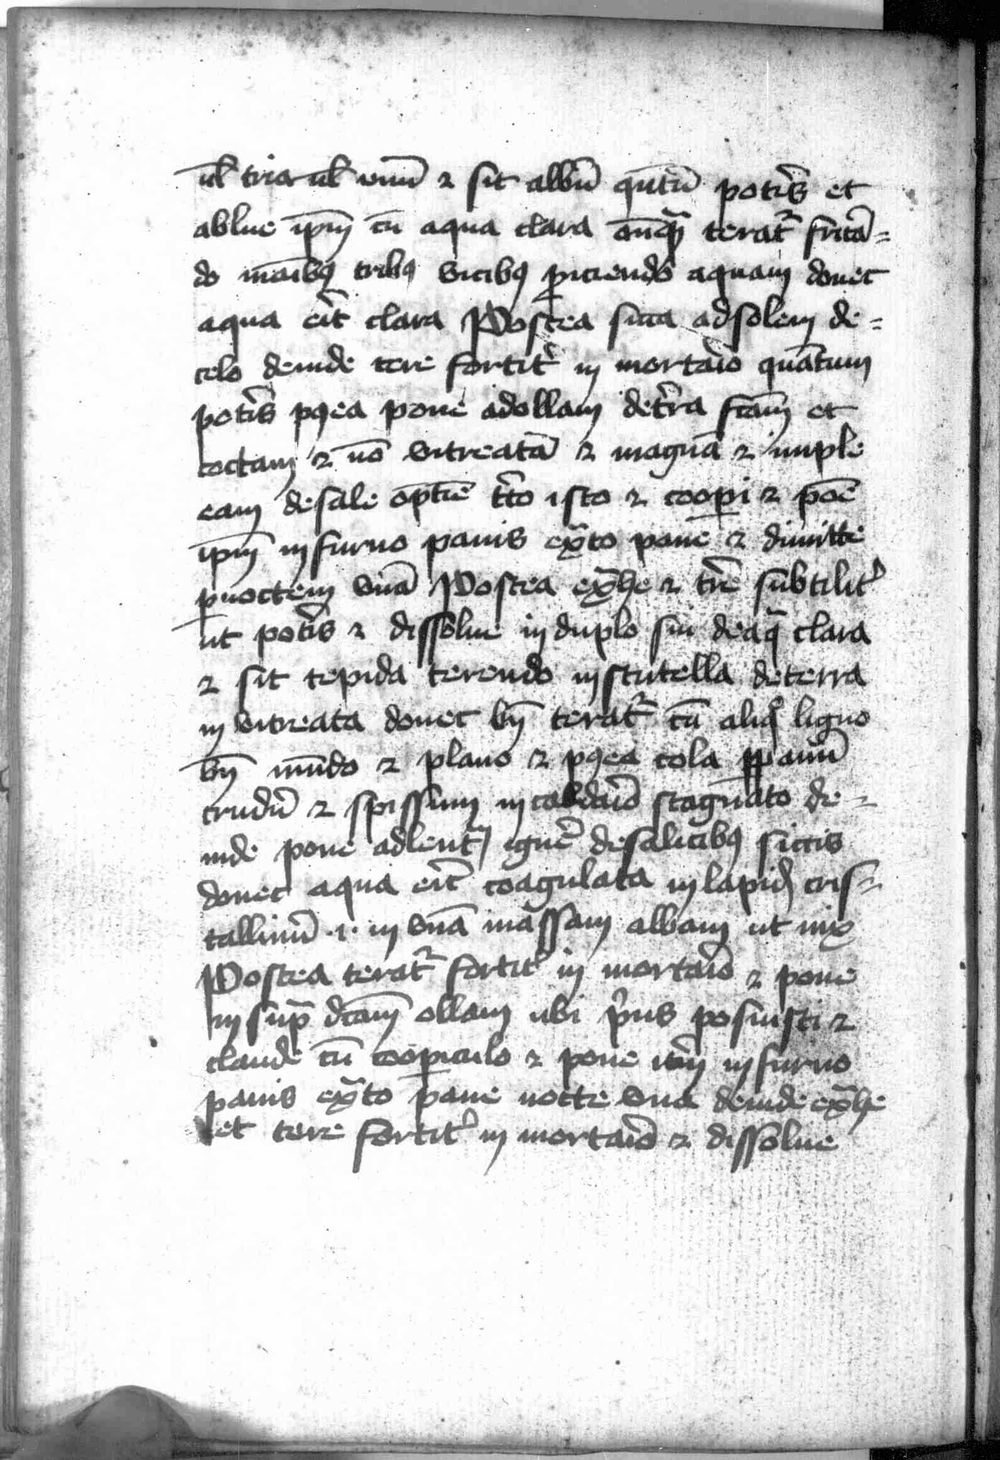 ul tria ul unū ⁊ sit albū qntū potis et
ablue ipm cū aqua clara anq terat fricā=
do manibꝰ tribꝰ vicibꝰ piciendo aquam donec
aqua erit clara Postea sicca ad solem de=
celo deinde tere fortit in mortaio quantum
potis pꝰea pone ad ollam de tra fcam et
coctam ⁊ nō vitreatā ⁊ magnā ⁊ imple
eam de sale optie trito isto ⁊ coopi ⁊ poē
ipm in furno panis exto pane ⁊ dimitte
p noctem unā Postea exhe ⁊ tre subtilit
ut potis ⁊ dissolue in duplo sui de aq clara
⁊ sit tepida terendo in scutella de terra
in vitreata donec bn terat cū aliq ligno
bn mūdo ⁊ plano ⁊ pꝰea cola p panū
crudū ⁊ spissum in caldaio stagnato de=
inde pone ad lent ignē de salicibꝰ siccis
donec aqua erit coagulata in lapid cris=
tallinū .i. in unā massam albam ut nix
Postea terat fortit in mortaio ⁊ pone
in sup dcam ollam ubi prius posuisti ⁊
claude cū coopiculo ⁊ pone itm in furno
panis exto pane nocte una deinde exhe
et tere fortit in mortaio ⁊ dissolue